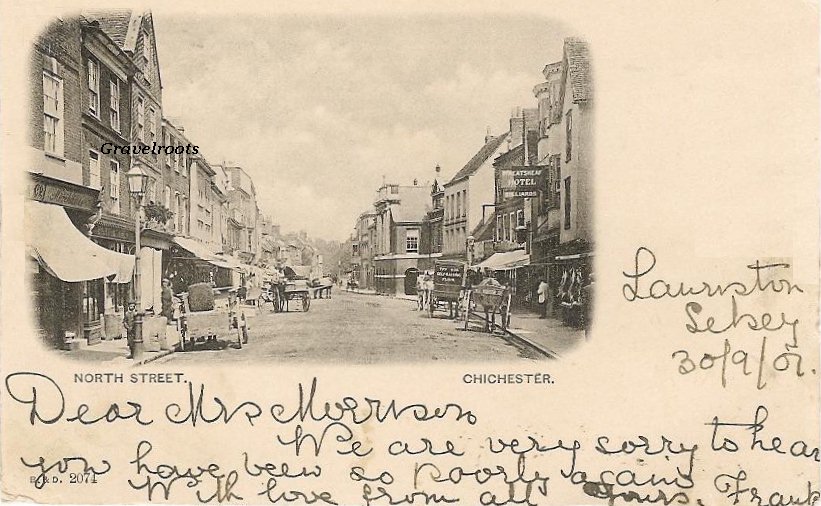 Gravelroots
WHEATSHEAF
HOTEL
BILLIARDS
NORTH STREET.
CHICHESTER.
Lauriston
Selsey
30/9/01.
Dear Mrs Morrison
We are very sorry to hear
you have been so poorly again
B. & D. 2074
With love from all Yours, Frank